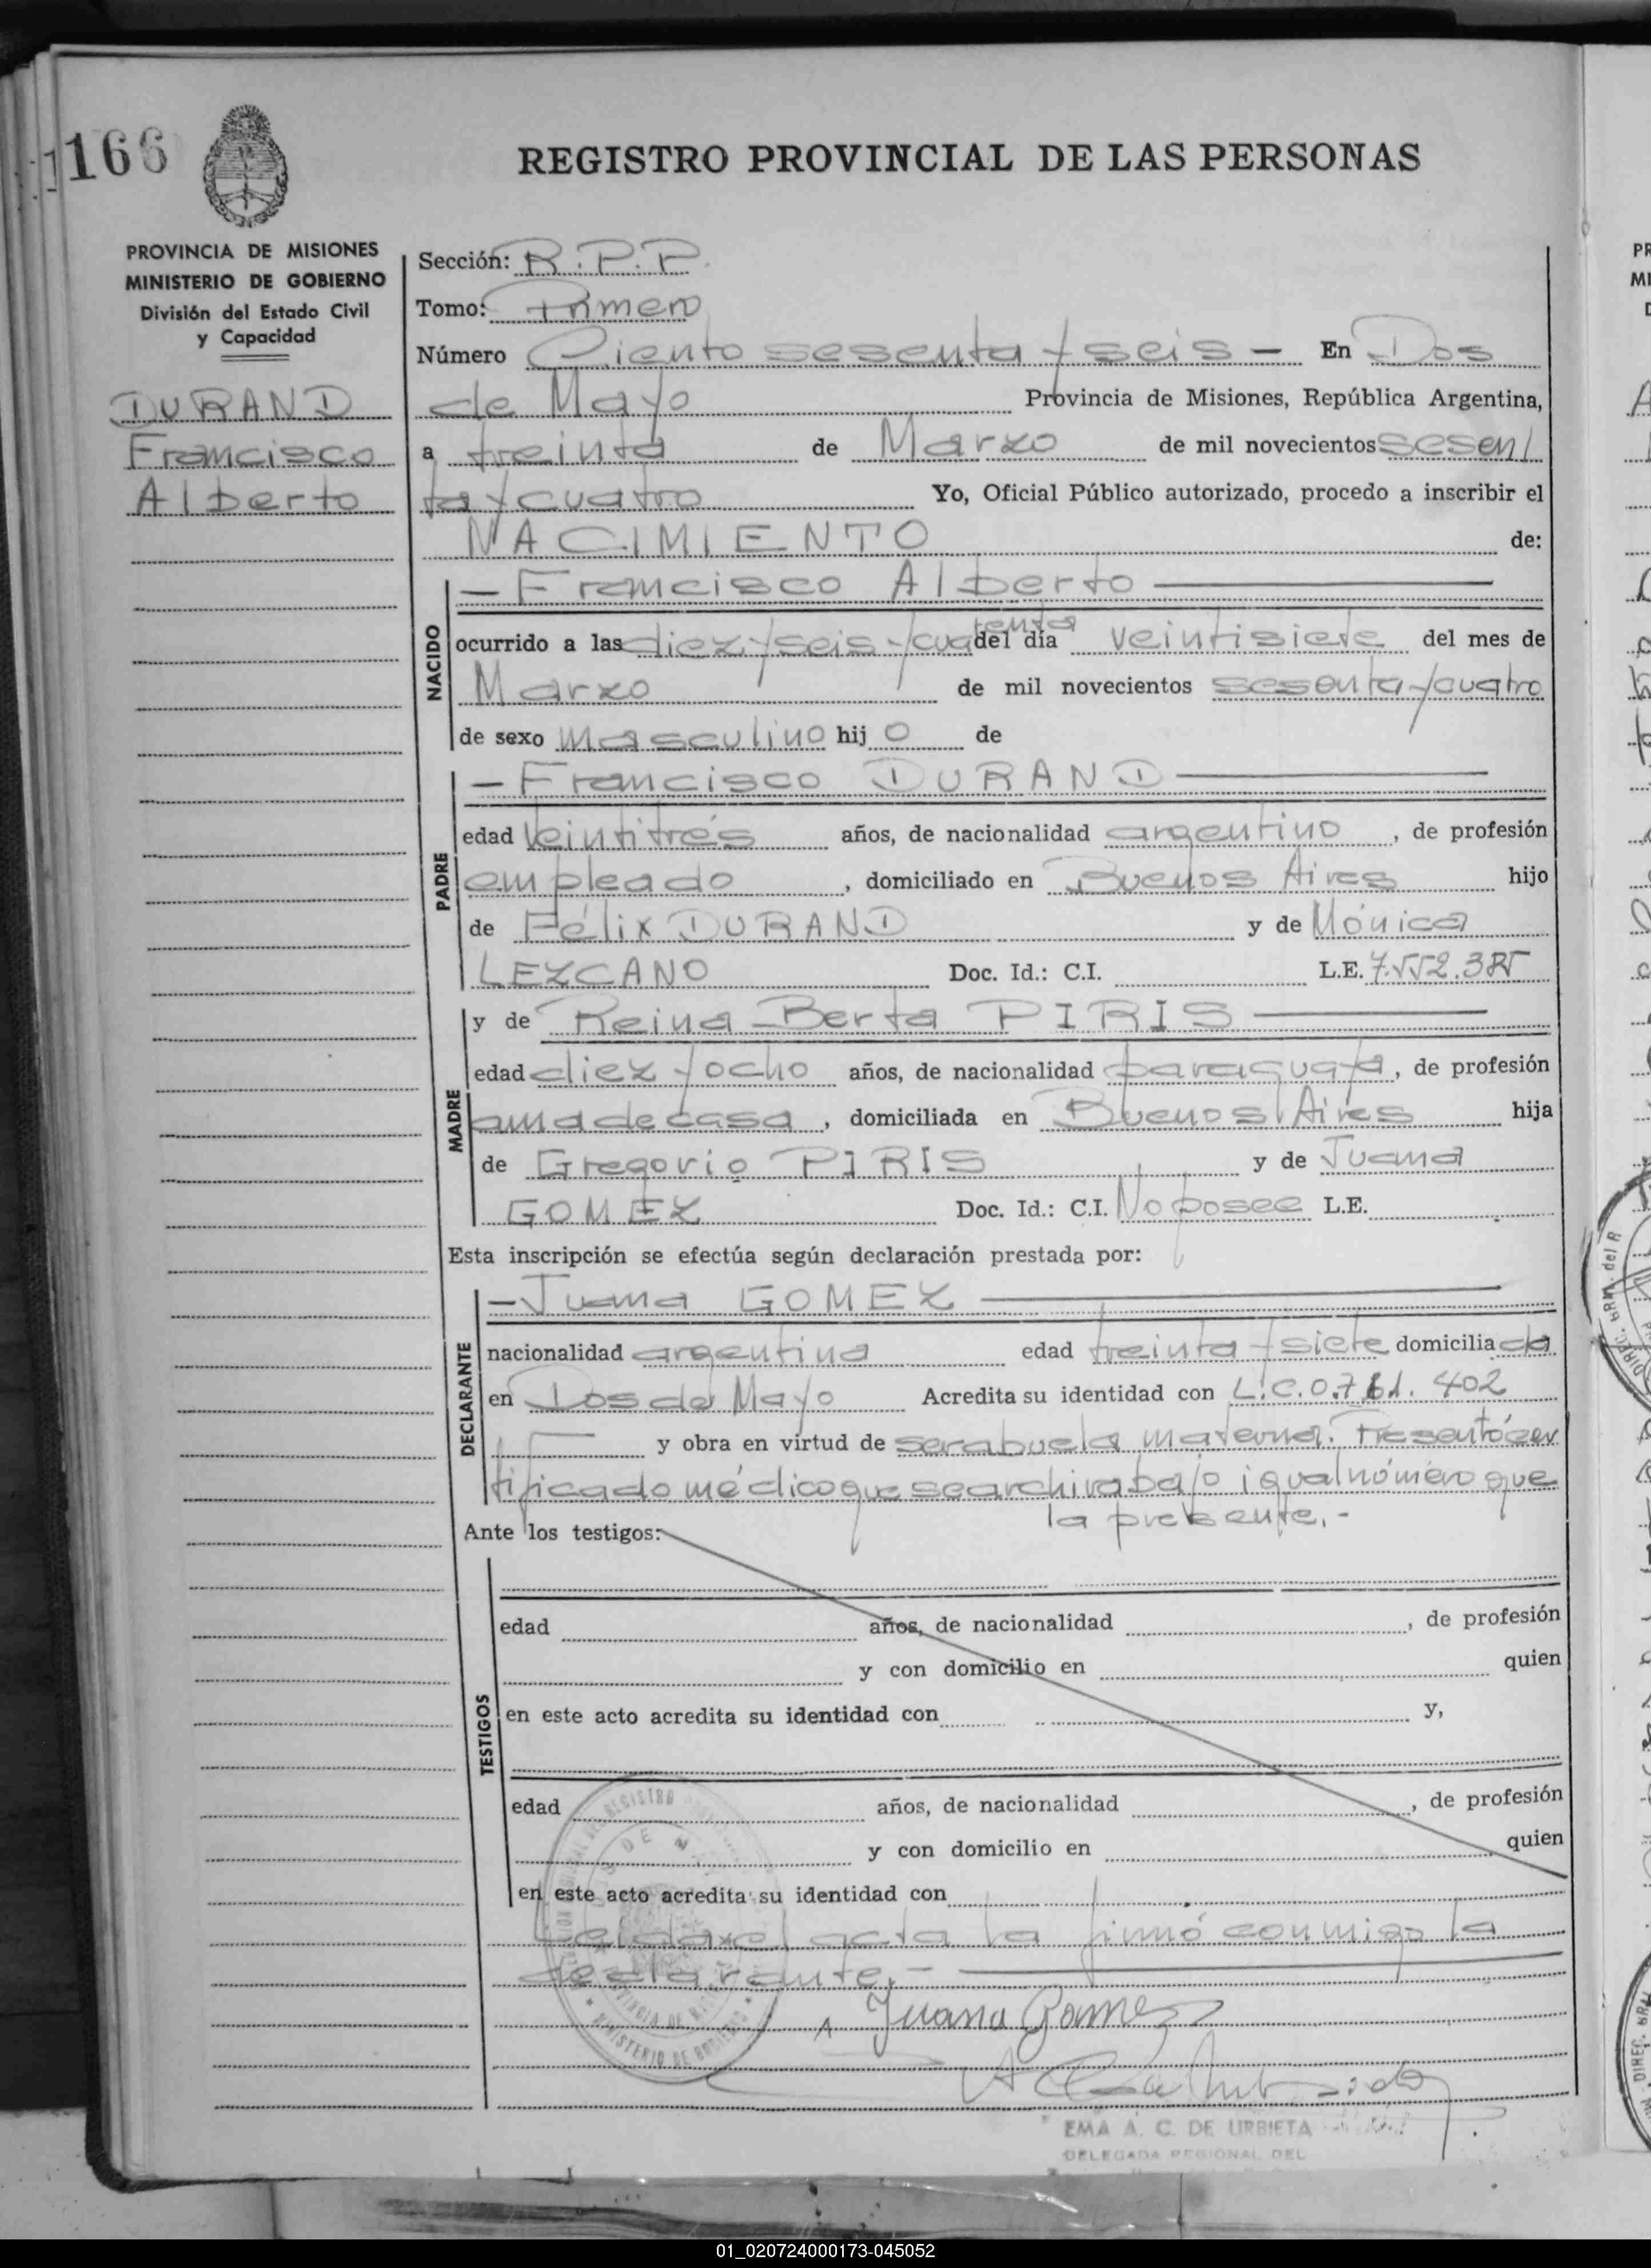 166
REGISTRO PROVINCIAL DE LAS PERSONAS
PROVINCIA DE MISIONES
MINISTERIO DE GOBIERNO
División del Estado Civil
y Capacidad
DURAND
Francisco
Alberto
Sección: R.P.P.
Tomo: Primero
Número Ciento sesenta y seis - En Dos
de Mayo Provincia de Misiones, República Argentina,
a treinta de Marzo de mil novecientos sesen/
ta y cuatro Yo, Oficial Público autorizado, procedo a inscribir el
NACIMIENTO de:
NACIDO
- Francisco Alberto
ocurrido a las diez y seis y cuarenta del día veintisiete del mes de
Marzo de mil novecientos sesenta y cuatro
de sexo masculino hij o de
PADRE
- Francisco DURAND
edad veintitrés años, de nacionalidad argentino, de profesión
empleado, domiciliado en Buenos Aires hijo
de Félix DURAND y de Mónica
LEZCANO Doc. Id.: C.I. L.E. 7.552.385
MADRE
y de Reina Berta PIRIS
edad diez y ocho años, de nacionalidad paraguaya, de profesión
ama de casa, domiciliada en Buenos Aires hija
de Gregorio PIRIS y de Juana
GOMEZ Doc. Id.: C.I. No posee L.E.
Esta inscripción se efectúa según declaración prestada por:
DECLARANTE
- Juana GOMEZ
nacionalidad argentina edad treinta y siete domicilia da
en Dos de Mayo Acredita su identidad con L.C.0.761.402
y obra en virtud de ser abuela materna. Presentó cer
tificado médico que se archiva bajo igual número que
la presente.-
Ante los testigos:
TESTIGOS
edad años, de nacionalidad , de profesión
y con domicilio en quien
en este acto acredita su identidad con y,
edad años, de nacionalidad , de profesión
y con domicilio en quien
en este acto acredita su identidad con
Leída el acta la firmó conmigo la
declarante.-
Juana Gomez
EMA A. C. DE URBIETA
DELEGADA REGIONAL DEL
01_020724000173-045052